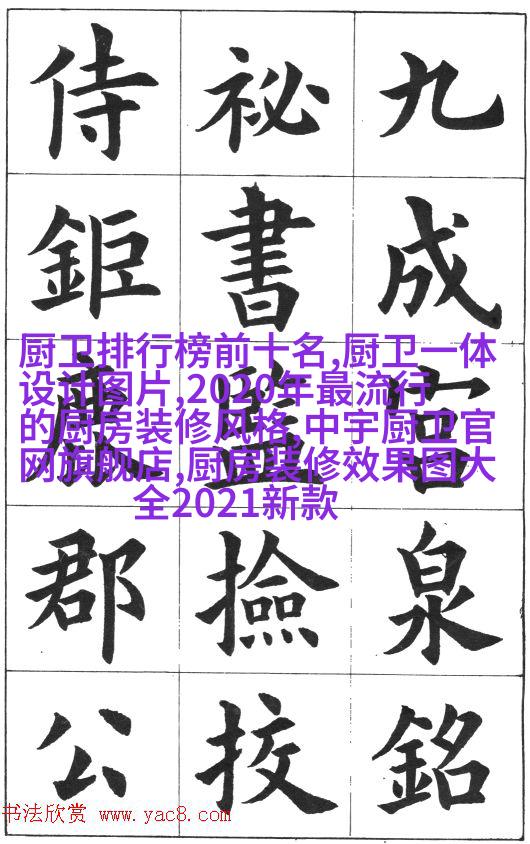 九成宮泉銘
祕書監撿挍
侍鉅鹿郡公
厨卫排行榜前十名,厨卫一体
设计图片,2020年最流行
的厨房装修风格,中宇厨卫官
网旗舰店,厨房装修效果图大
全2021新款
书法欣赏 www.yac8.com